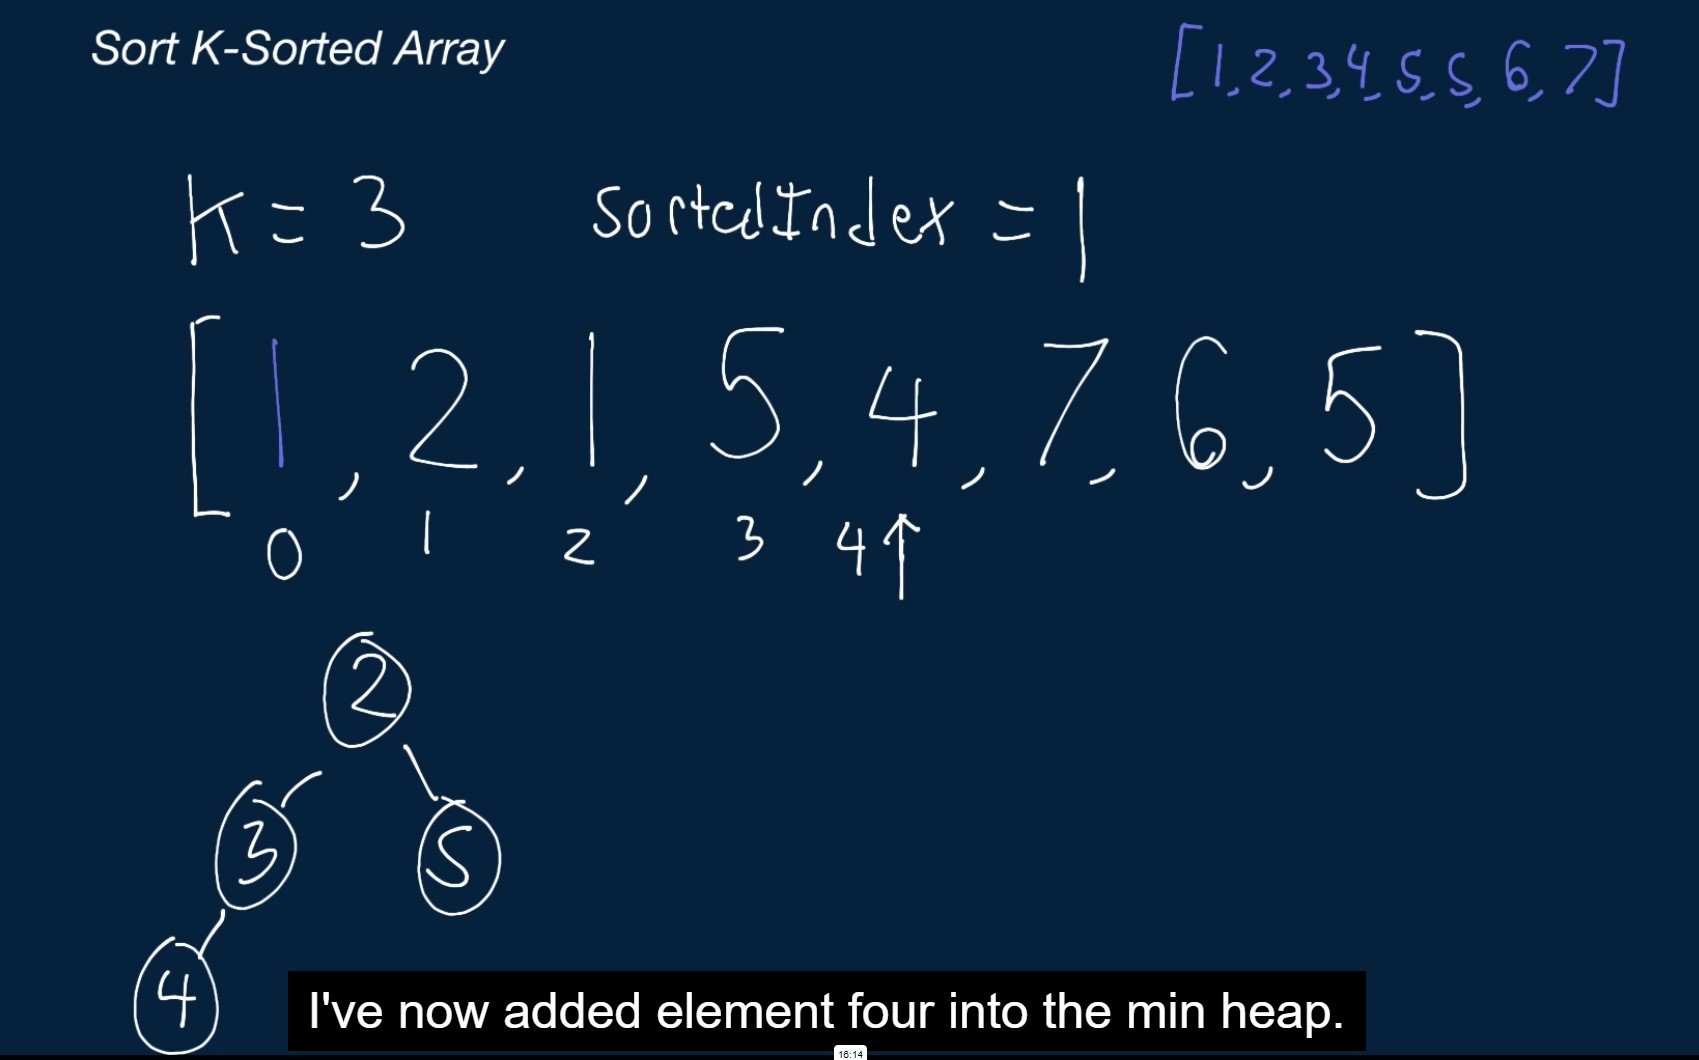 Sort K-Sorted Array
[1,2,3,4,5,5,6,7]
K=3 sortedIndex=1
[1,2,1,5,4,7,6,5]
0 1 2 3 4↑
2
3 5
4
I've now added element four into the min heap.
16:14